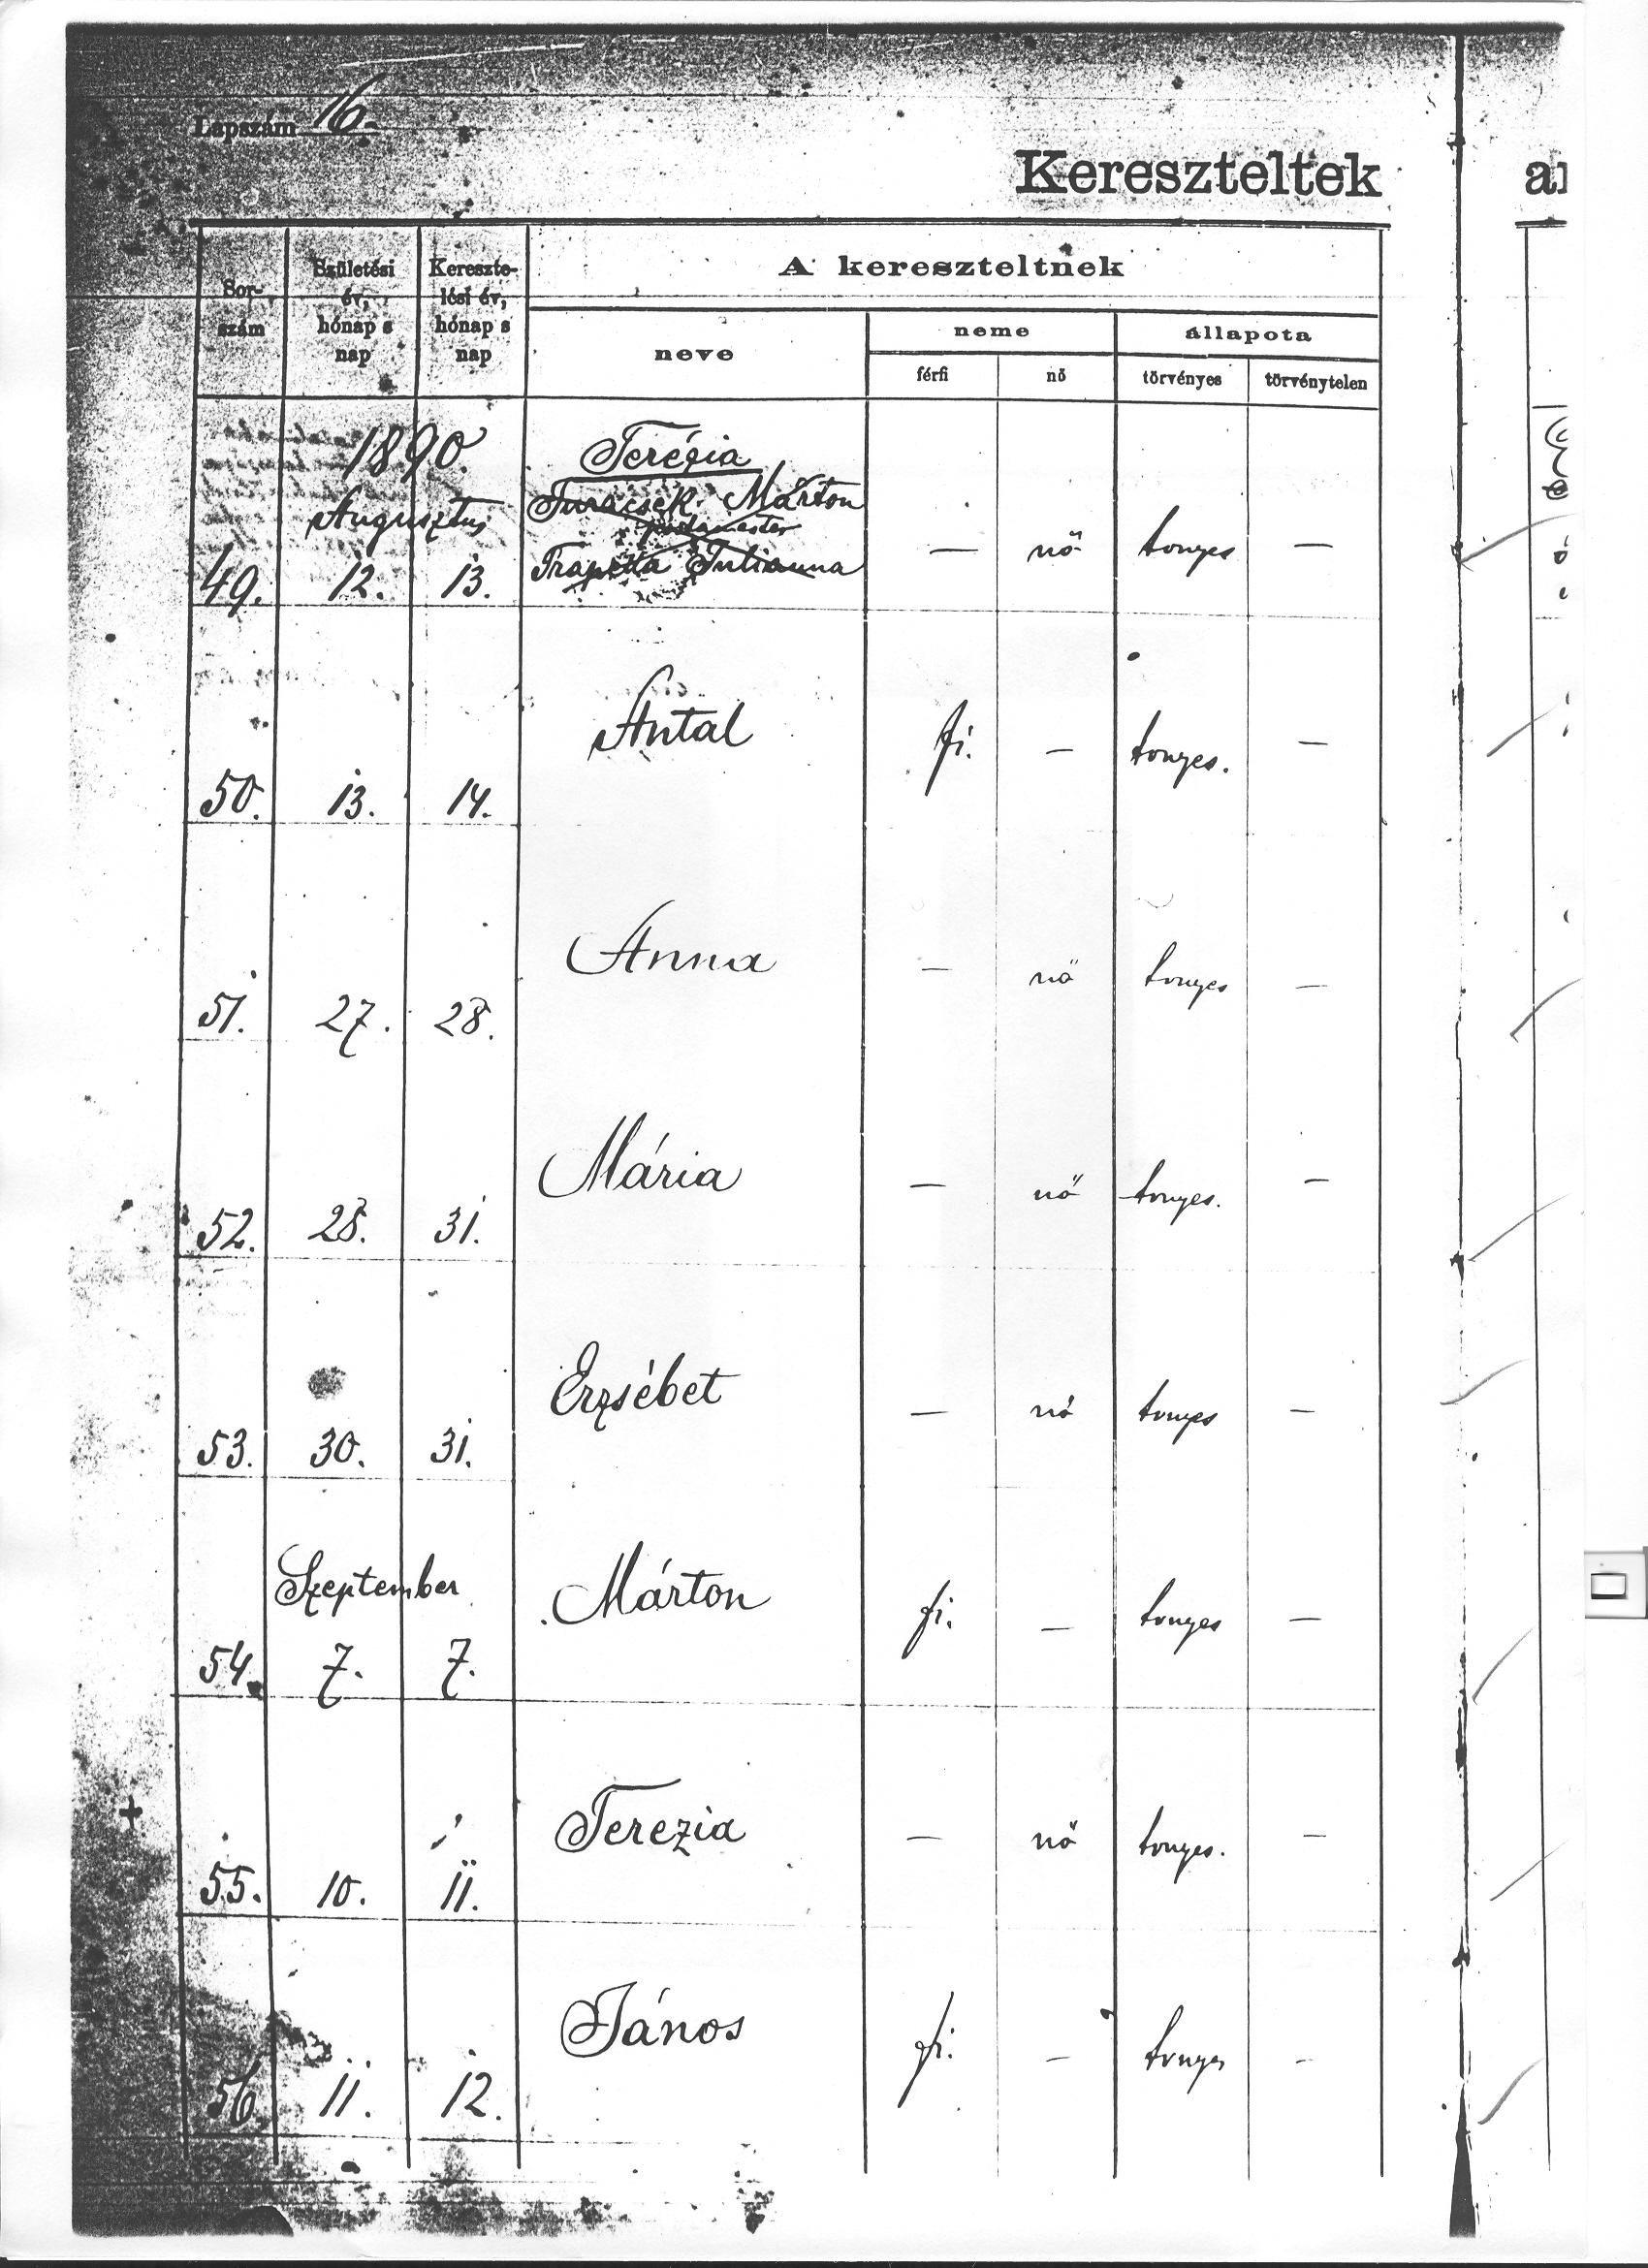 Lapszám 16.
Kereszteltek
Sor-
szám
Születési
év,
hónap s
nap
Keresztе-
lési év,
hónap s
nap
A kereszteltnek
neve
neme
állapota
férfi
nő
törvényes
törvénytelen
1890.
Terézia
Augusztus
Márton
49. 12. 13. Julianna — nő tvnyes —
50. 13. 14. Antal fi. — tvnyes. —
51. 27. 28. Anna — nő tvnyes —
52. 28. 31. Mária — nő tvnyes. —
53. 30. 31. Erzsébet — nő tvnyes —
Szeptember
54. 7. 7. Márton fi. — tvnyes —
55. 10. 11. Terezia — nő tvnyes. —
56. 11. 12. János fi. — tvnyes —